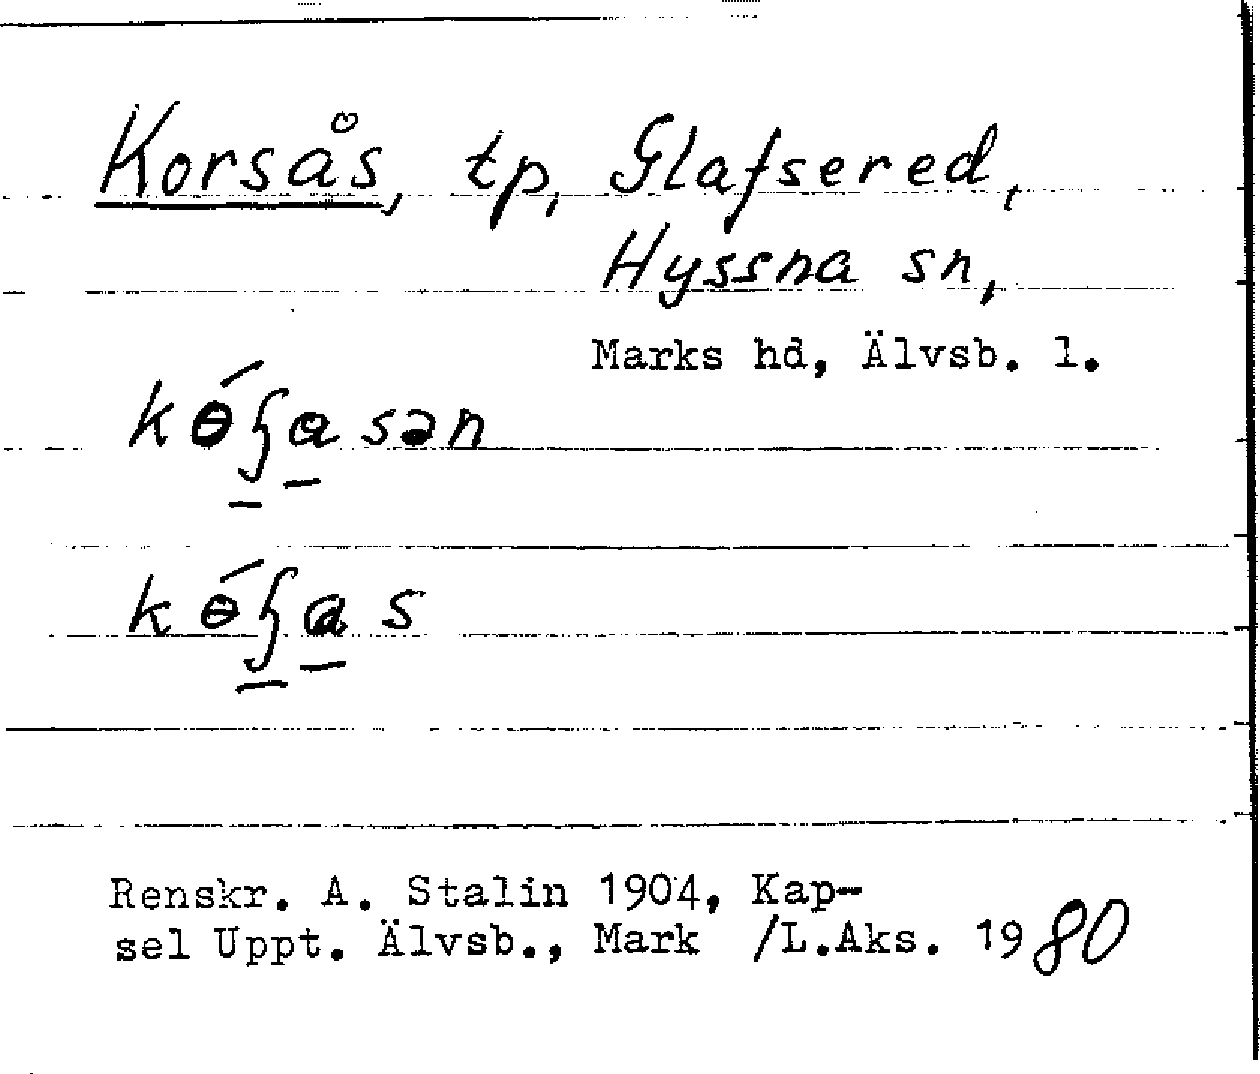 Korsås, tp, Glafsered,
Hyssna sn,
Marks hd, Älvsb. l.
kɵ́ʂasən
kɵ́ʂas
Renskr. A. Stalin 1904, Kap-
sel Uppt. Älvsb., Mark /L.Aks. 1980